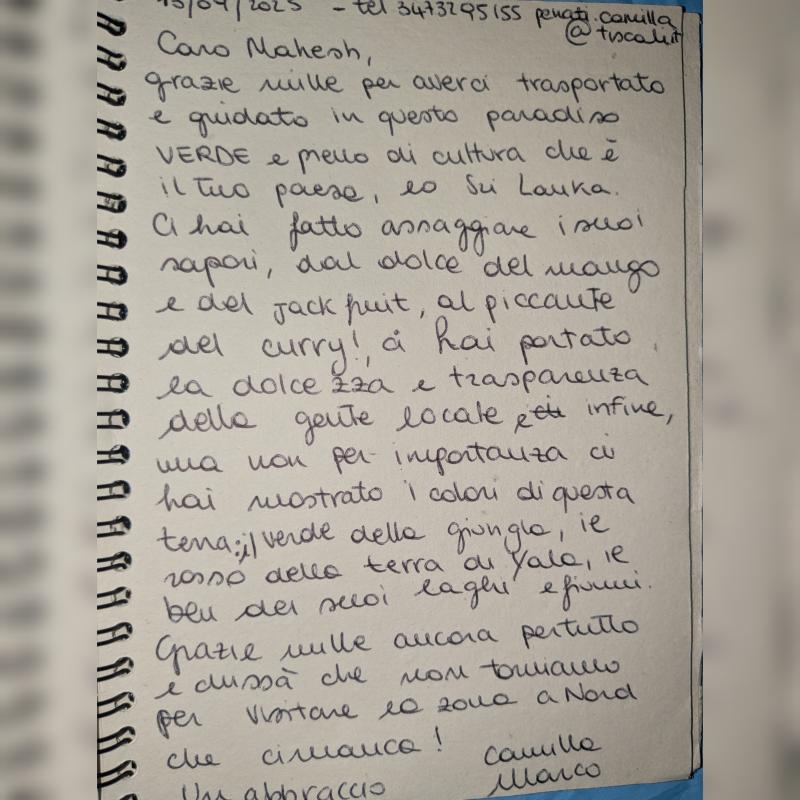 15/04/2025 - tel 3473295155 penati.camilla
@tiscali.it
Caro Mahesh,
grazie mille per averci trasportato
e guidato in questo paradiso
VERDE e pieno di cultura che è
il tuo paese, lo Sri Lanka.
Ci hai fatto assaggiare i suoi
sapori, dal dolce del mango
e del jackfruit, al piccante
del curry!, ci hai portato
la dolcezza e trasparenza
della gente locale e infine,
ma non per importanza ci
hai mostrato i colori di questa
terra: il verde della giungla, il
rosso della terra di Yala, il
blu dei suoi laghi e fiumi.
Grazie mille ancora per tutto
e chissà che non torniamo
per visitare la zona a Nord
che ci manca!
Camilla
Un abbraccio Marco